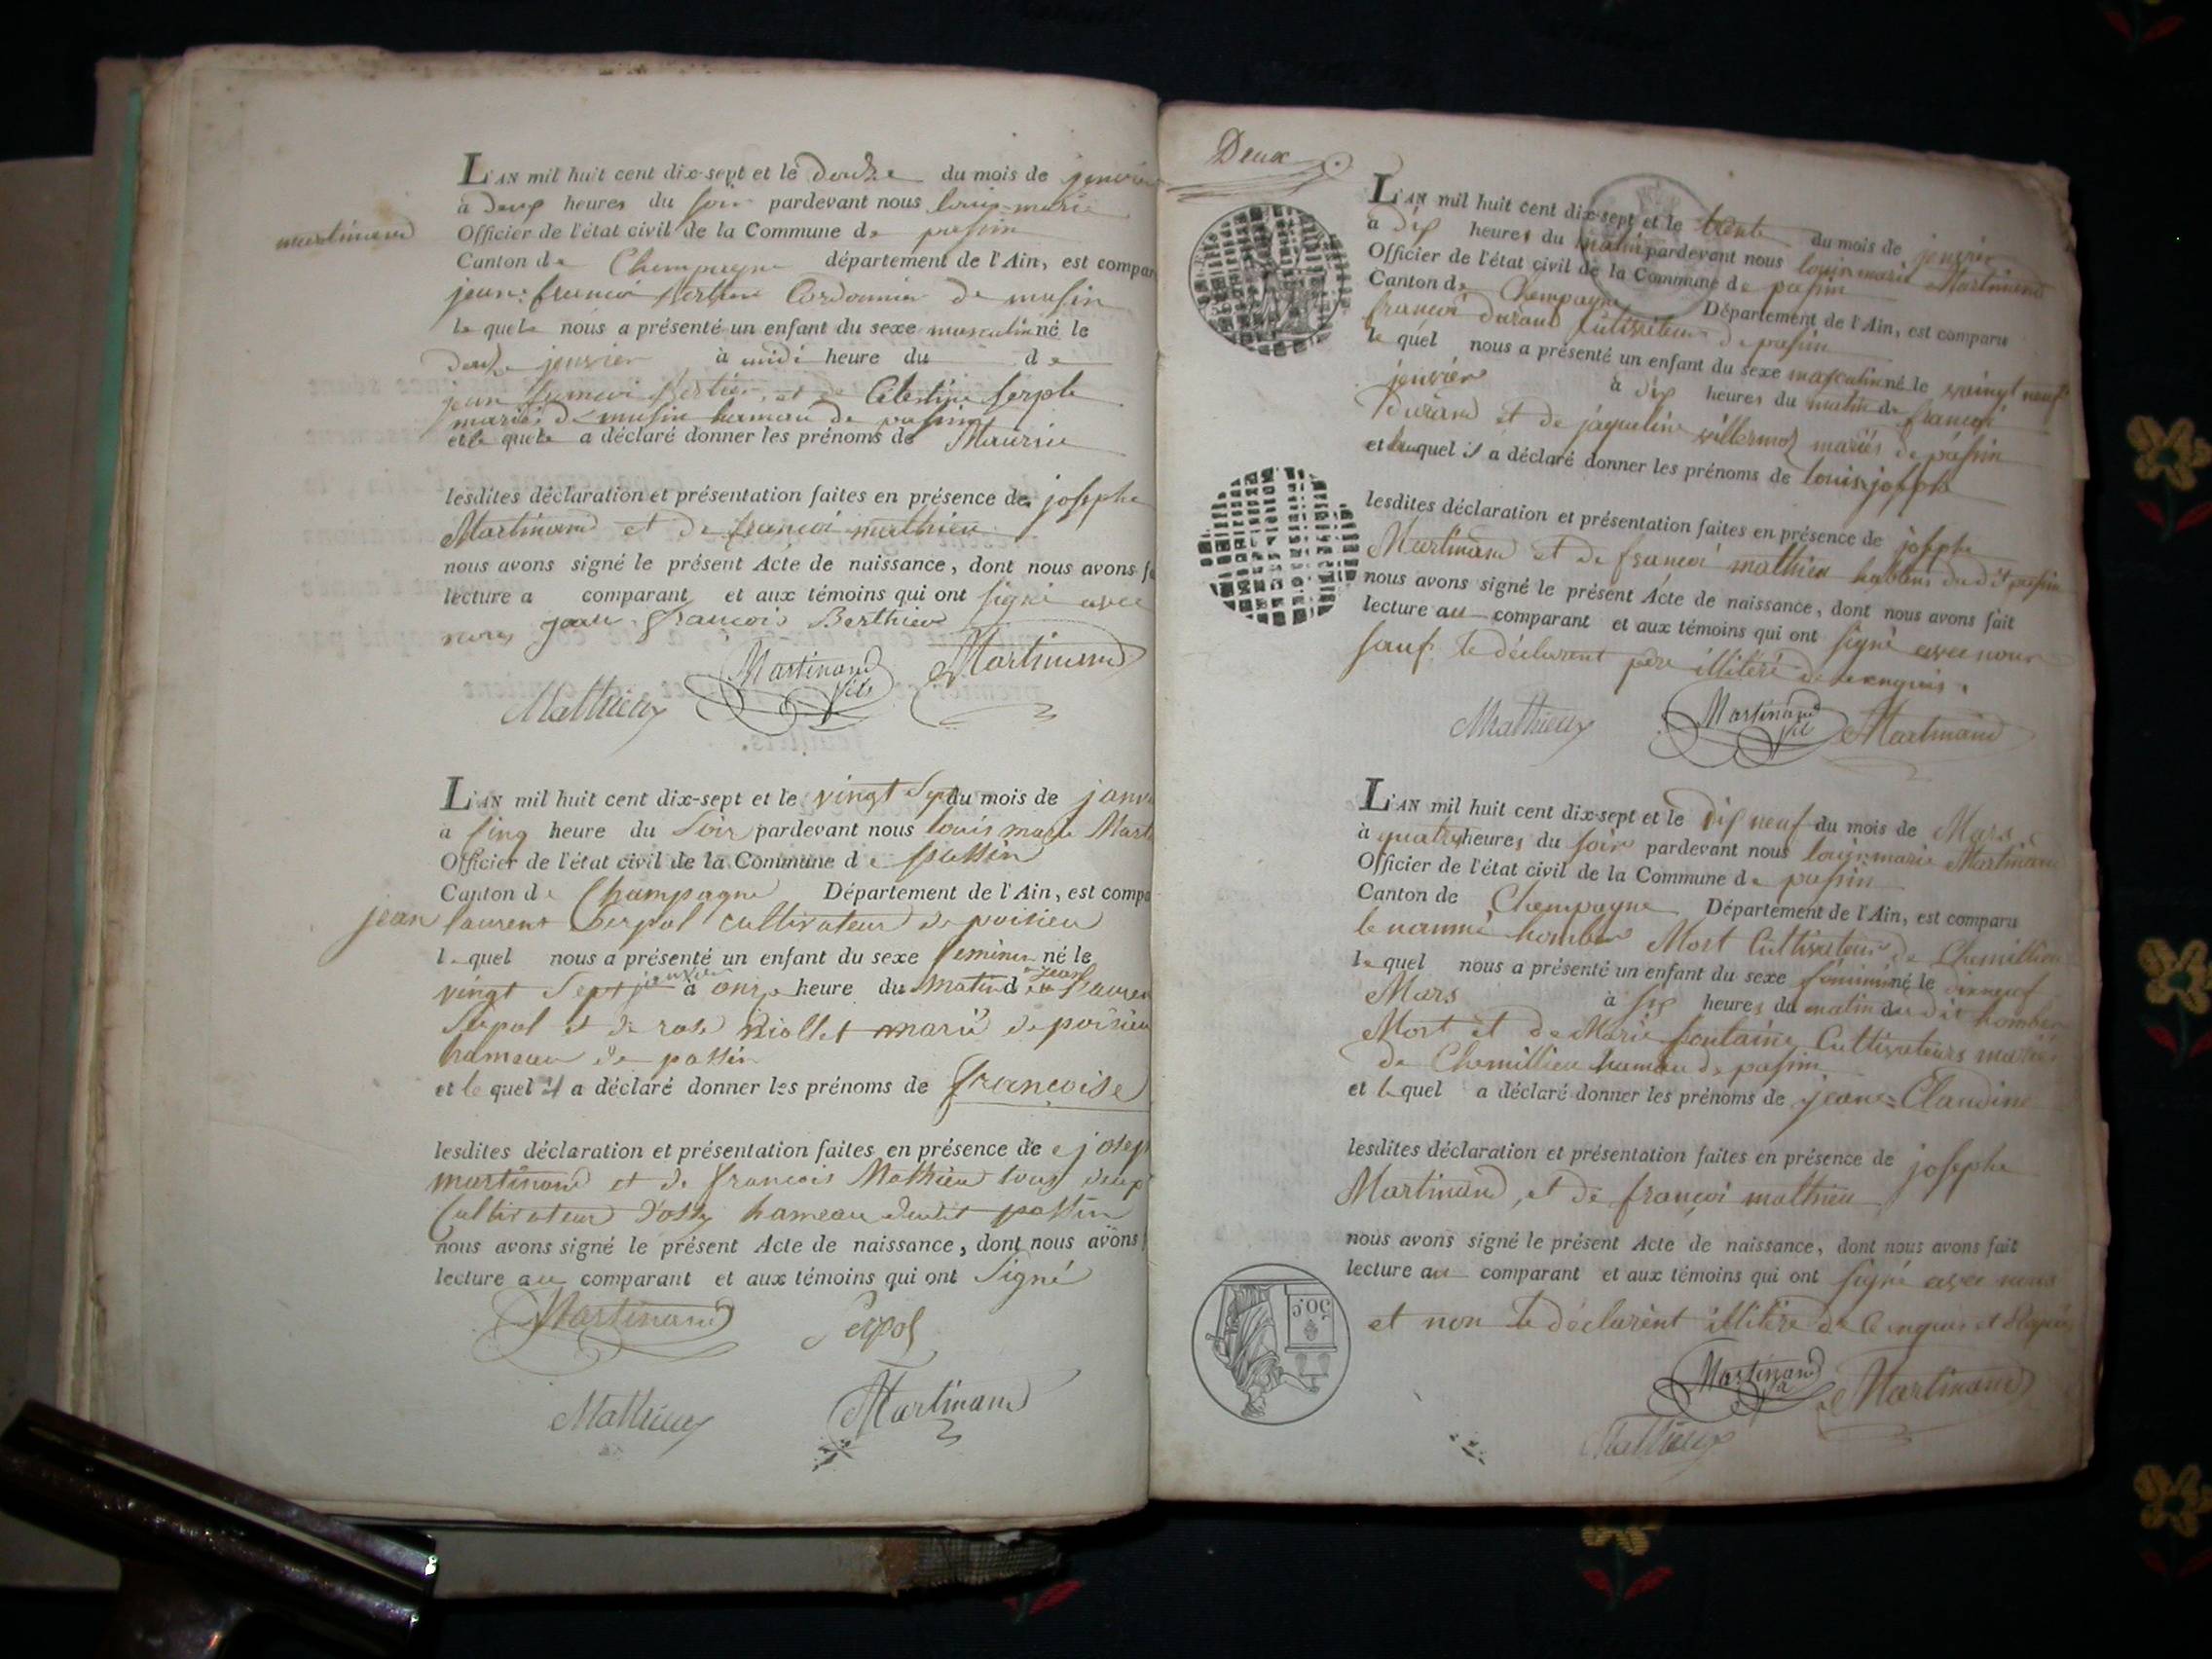 L'AN mil huit cent dix-sept et le douze du mois de janvier
à deux heures du soir pardevant nous louis-marie
martinand
Officier de l'état civil de la Commune de passin
Canton de Champagne département de l'Ain, est compar
jean-francoi Cordonnier de musin
le quel nous a présenté un enfant du sexe masculin né le
douze janvier à midi heure du de
jean francoi et de Célestine
mariés de musin hameau de passin
et le quel a déclaré donner les prénoms de Maurice
lesdites déclaration et présentation faites en présence de josephe
Martinand et de francoi mathieu
nous avons signé le présent Acte de naissance, dont nous avons fa
lecture a comparant et aux témoins qui ont signé avec
nous jean-francois Berthier
Martinand Martinand
Mathieux
L'AN mil huit cent dix-sept et le vingt Sept du mois de janv
à cinq heure du Soir pardevant nous louis marie Mart
Officier de l'état civil de la Commune de passin
Canton de Champagne Département de l'Ain, est compa
jean laurent Serpol cultivateur de poisieu
lequel nous a présenté un enfant du sexe feminin né le
vingt Sept janvier à onze heure du Matin de jean Lauren
Serpol et de rose Riollet marié de poisieu
hameau de passin
et le quel il a déclaré donner les prénoms de francoise
lesdites déclaration et présentation faites en présence de josep
martinand et de francois Mathieu tous deux
Cultivateur d'ossy hameau dudit passin
nous avons signé le présent Acte de naissance, dont nous avons
lecture au comparant et aux témoins qui ont Signé
Martinand Serpol
Mathieux Martinand
Deux
L'AN mil huit cent dix-sept et le trente du mois de janvier
à dix heures du matin pardevant nous louis marie Martinand
Officier de l'état civil de la Commune de passin
Canton de Champagne Département de l'Ain, est comparu
françoi durand Cultivateur de passin
le quel nous a présenté un enfant du sexe masculin né le vaingt neuf
janvier à dix heures du matin de françoi
durand et de jaqueline villermoz mariés de passin
et auquel il a déclaré donner les prénoms de louis josephe
lesdites déclaration et présentation faites en présence de josephe
Martinand et de françoi mathieu habitans dudit passin
nous avons signé le présent Acte de naissance, dont nous avons fait
lecture au comparant et aux témoins qui ont signé avec nous
sauf le déclarant père illitéré de ce enquis.
Mathieux Martinand Martinand
L'AN mil huit cent dix-sept et le dix neuf du mois de Mars
à quatre heures du soir pardevant nous louis marie Martinand
Officier de l'état civil de la Commune de passin
Canton de Champagne Département de l'Ain, est comparu
le nommé humber Mort Cultivateur de Chemillieu
le quel nous a présenté un enfant du sexe féminin né le dixneuf
Mars à six heures du matin du dit humber
Mort et de Marie fontaine Cultivateurs mariés
de Chemillieu hameau de passin
et le quel a déclaré donner les prénoms de jeane=Claudine
lesdites déclaration et présentation faites en présence de josephe
Martinand, et de françoi mathieu
nous avons signé le présent Acte de naissance, dont nous avons fait
lecture au comparant et aux témoins qui ont signé avec nous
et non le déclarent illitéré de ce enquis et
50 c.
Martinand Martinand
Mathieux